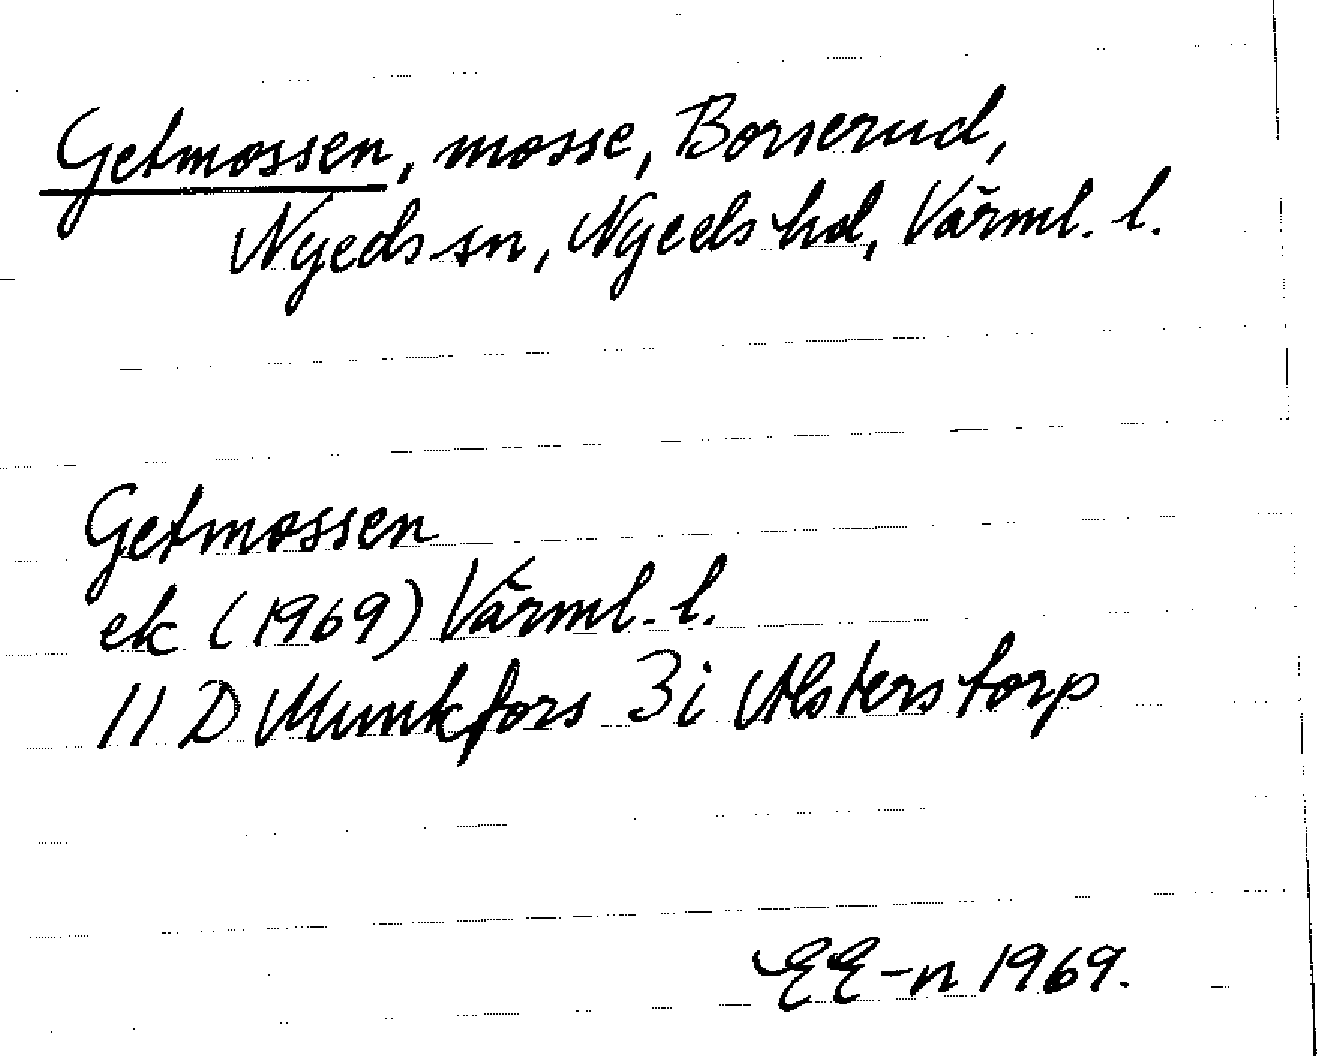 Getmossen, mosse, Borserud,
Nyeds sn, Nyeds hd, Värml. l.
Getmossen
ek (1969) Värml. l.
11 D Munkfors 3 i Alsterstorp
EE-n 1969.